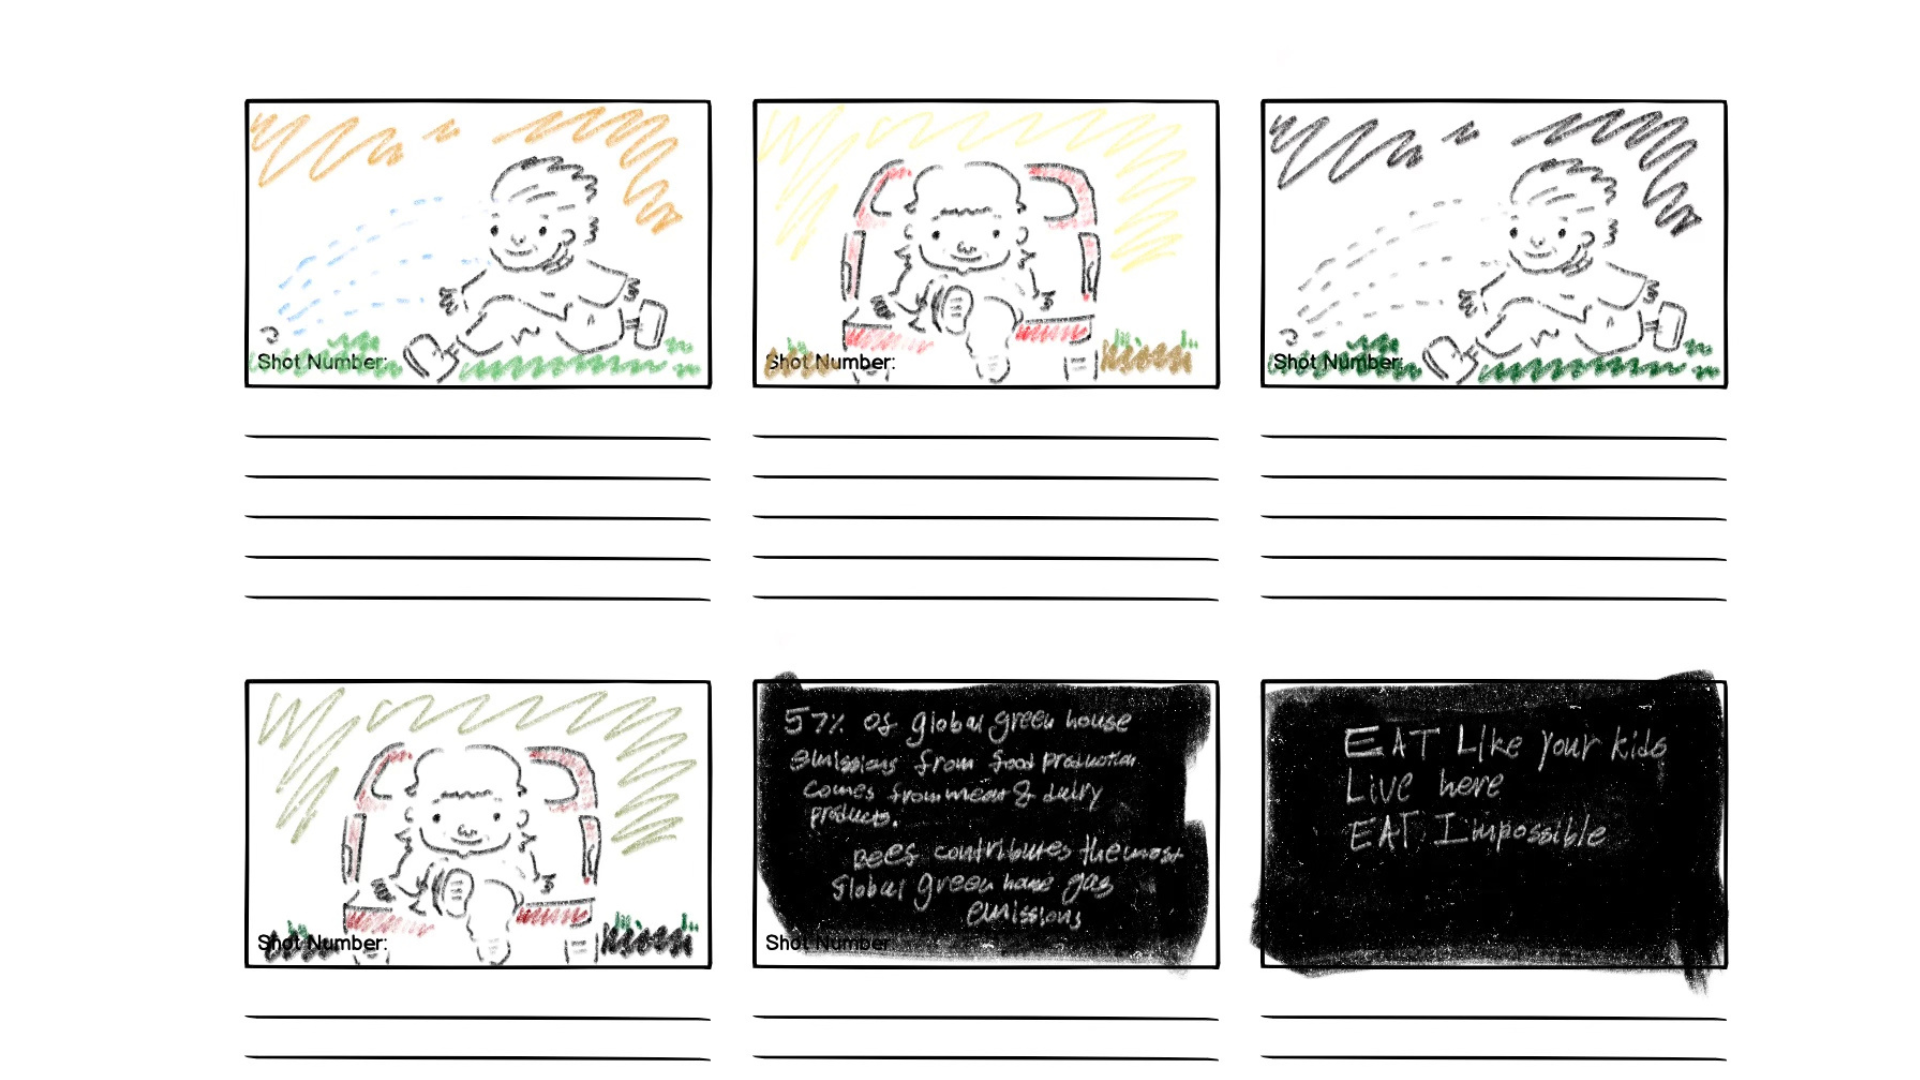 Shot Number:
Shot Number:
Shot Number:
Shot Number:
57% of global green house
emissions from food production
comes from meat & dairy
products.
Beef contributes the most
global green house gas
emissions
Shot Number
EAT Like your kids
Live here
EAT Impossible